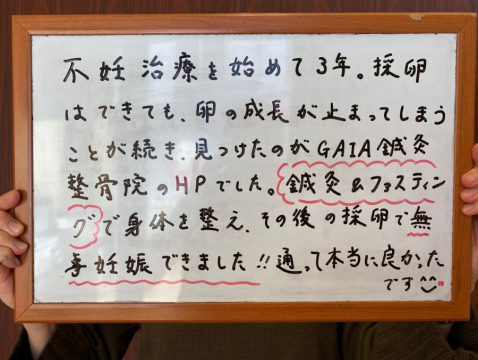 不妊治療を始めて3年。採卵
はできても、卵の成長が止まってしまう
ことが続き、見つけたのがGAIA鍼灸
整骨院のHPでした。鍼灸&ファスティン
グで身体を整え、その後の採卵で無
事妊娠できました!!通って本当に良かった
です